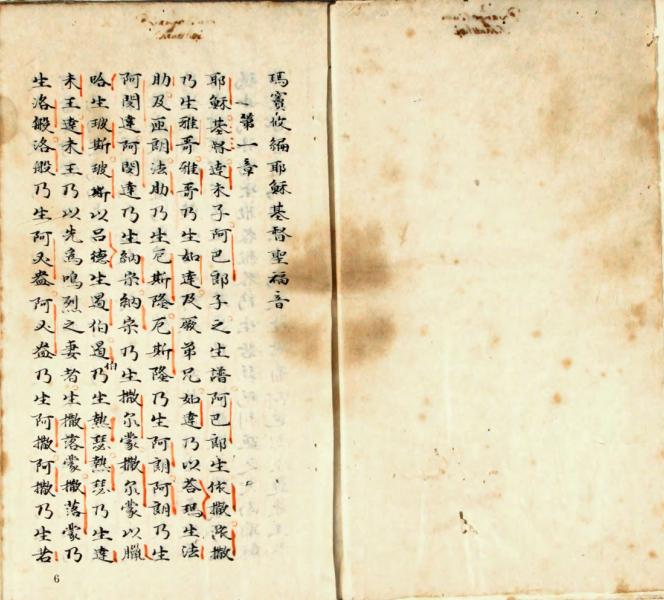 瑪竇攸編耶穌基督聖福音
第一章
耶穌基督達未子阿巴郎子之生譜阿巴郎生依撒依撒
乃生雅哥雅哥乃生如達及厥弟兄如達乃以荅瑪生法
肋及匝朗法肋乃生厄斯隆厄斯隆乃生阿朗阿朗乃生
阿閔達阿閔達乃生納宗納宗乃生撒尔蒙撒尔蒙以臘
哈生玻斯玻斯以吕德生遏伯遏伯乃生熱瑟熱瑟乃生達
未王達未王乃以先為嗚烈之妻者生撒落蒙撒落蒙乃
生洛般洛般乃生阿盎阿盎乃生阿撒阿撒乃生若
6